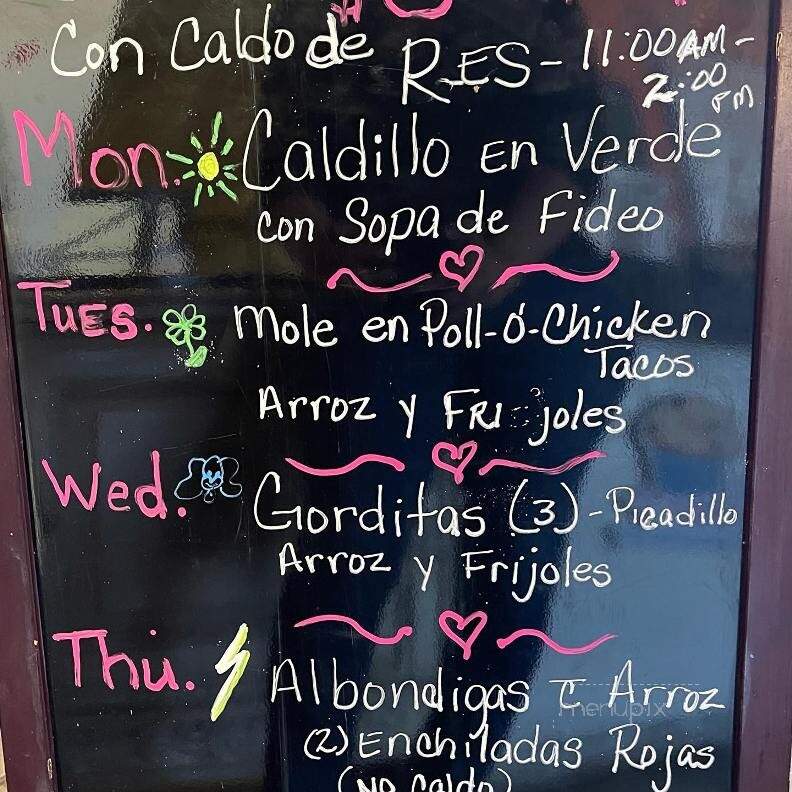 Con Caldo de RES - 11:00 AM -
2:00 PM
Mon. Caldillo En Verde
con Sopa de Fideo
Tues. Mole en Poll-ó-Chicken
Tacos
Arroz y FRIjoles
Wed. Gorditas (3) - Picadillo
Arroz y Frijoles
Thu. Albondigas c̄ Arroz
menupix
(2) Enchiladas Rojas
(NO Caldo)